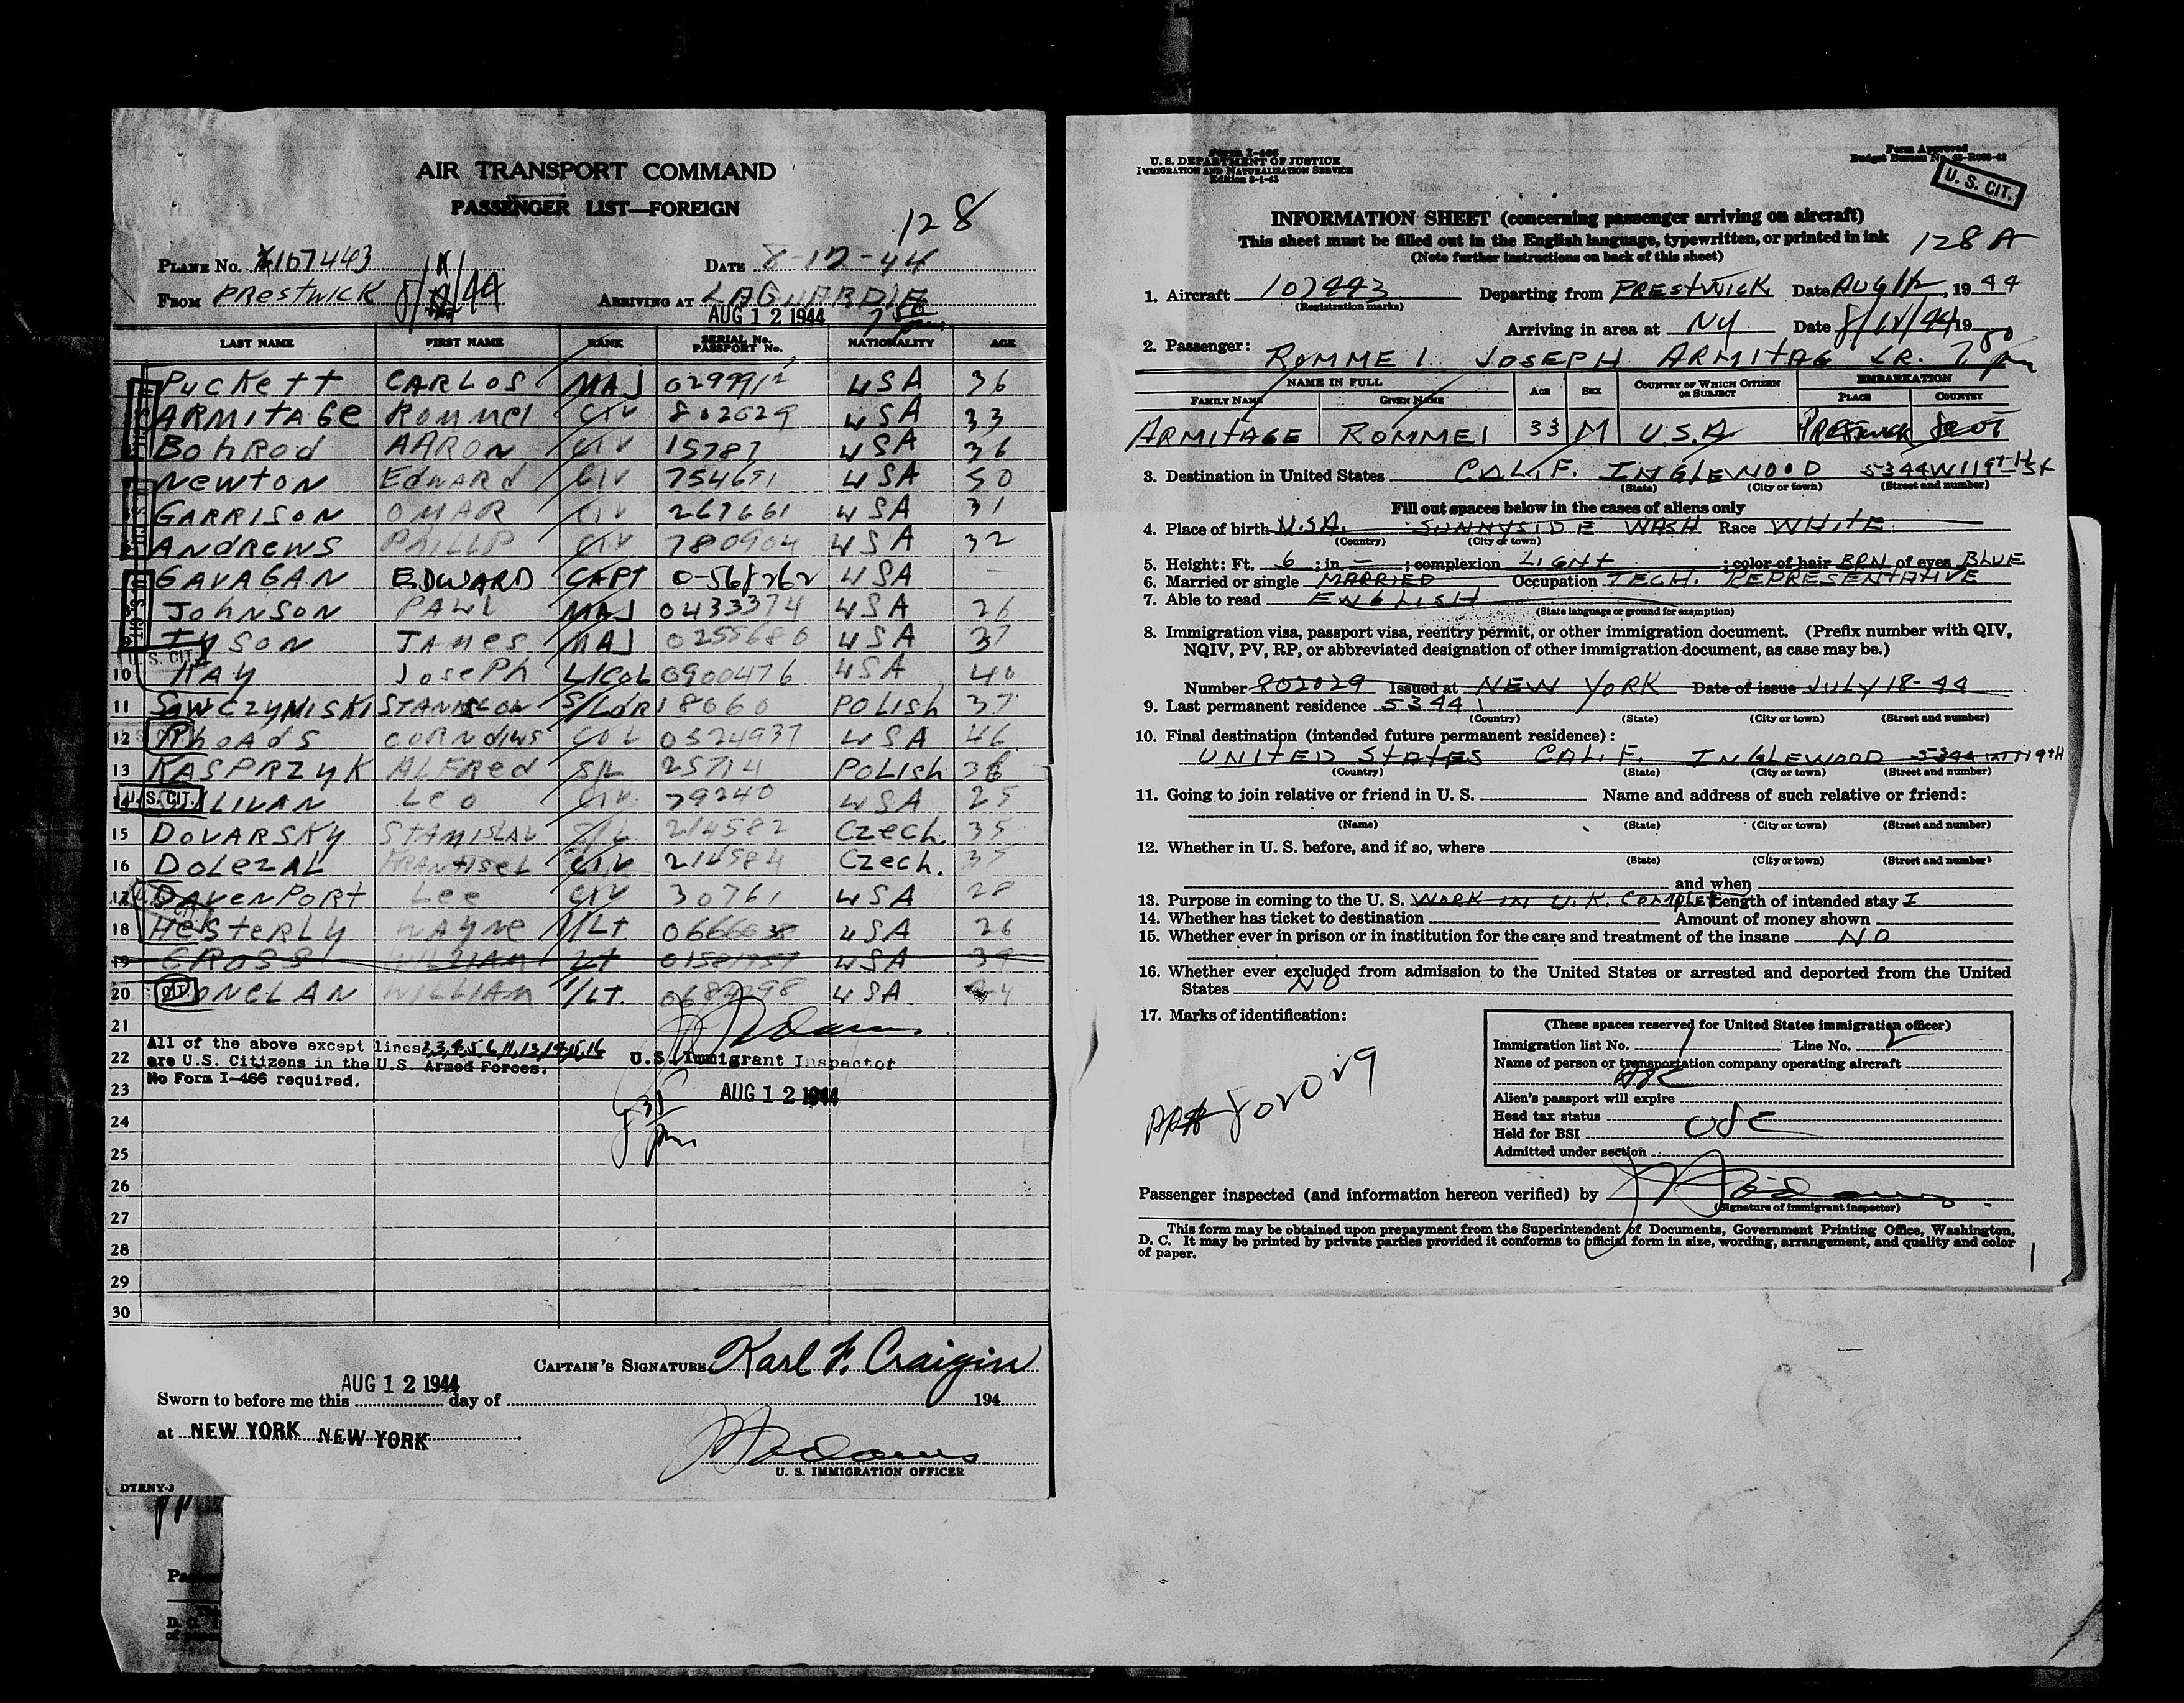 AIR TRANSPORT COMMAND
PASSENGER LIST—FOREIGN
128
PLANE No. 107443
DATE 8-12-44
FROM PRESTWICK
ARRIVING AT LAGUARDIA
AUG 12 1944
LAST NAME FIRST NAME RANK SERIAL No. PASSPORT No. NATIONALITY AGE
PUCKETT CARLOS MAJ USA 36
ARMITAGE ROMMEL CIV 802029 USA 33
BOHROD AARON CIV 15787 USA 36
NEWTON EDWARD CIV 754691 USA 50
GARRISON OMAR CIV 267661 USA 31
ANDREWS PHILIP CIV 780904 USA 32
GAVAGAN EDWARD CAPT 0-568262 USA —
JOHNSON PAUL MAJ 0433374 USA 26
JAMES MAJ 0255680 USA 37
10 KAY JOSEPH L/COL 0900476 USA 40
11 SAWCZYNISKI 18060 POLISH 37
12 RHOADS COL 0324937 USA 46
13 KASPRZYK ALFRED S/L 25714 POLISH 36
U.S. CIT. LEO CIV 79240 USA 25
15 DOVARSKY STANISLAV 214582 Czech. 35
16 DOLEZAL FRANTISEL CIV 214584 Czech. 35
17 DAVENPORT LEE CIV 30761 USA 28
18 HESTERLY WAYNE 1/LT. USA 26
19 CROSS WILLIAM LT 01581757 USA
20 WILLIAM 1/LT. USA 24
21
All of the above except lines 2,3,4,5,6,11,13,14,15,16
22 are U.S. Citizens in the U.S. Armed Forces. U.S. Immigrant Inspector
No Form I-466 required.
23 AUG 12 1944
24
25
26
27
28
29
30
CAPTAIN'S SIGNATURE Karl F. Craigin
AUG 12 1944
Sworn to before me this day of 194
at NEW YORK NEW YORK
U. S. IMMIGRATION OFFICER
DTRNY-3
Form I-466
U. S. DEPARTMENT OF JUSTICE
IMMIGRATION AND NATURALIZATION SERVICE
Edition 8-1-43
Form Approved
Budget Bureau No. 43-R083-42
U. S. CIT.
INFORMATION SHEET (concerning passenger arriving on aircraft)
This sheet must be filled out in the English language, typewritten, or printed in ink
(Note further instructions on back of this sheet)
128 A
1. Aircraft 107443 Departing from PRESTWICK Date AUG 12, 1944
(Registration marks)
Arriving in area at NY Date 8/12/44 19
2. Passenger: ROMMEL JOSEPH ARMITAGE JR.
NAME IN FULL AGE SEX COUNTRY OF WHICH CITIZEN OR SUBJECT EMBARKATION
FAMILY NAME GIVEN NAME PLACE COUNTRY
ARMITAGE ROMMEL 33 M U.S.A. PRESTWICK SCOT
3. Destination in United States CALIF. INGLEWOOD 5344 W 119TH ST
(State) (City or town) (Street and number)
Fill out spaces below in the cases of aliens only
4. Place of birth U.S.A. SUNNYSIDE WASH Race WHITE
(Country) (City or town)
5. Height: Ft. 6; in. —; complexion LIGHT; color of hair BRN of eyes BLUE
6. Married or single MARRIED Occupation TECH. REPRESENTATIVE
7. Able to read ENGLISH
(State language or ground for exemption)
8. Immigration visa, passport visa, reentry permit, or other immigration document. (Prefix number with QIV,
NQIV, PV, RP, or abbreviated designation of other immigration document, as case may be.)
Number 802029 Issued at NEW YORK Date of issue JULY 18-44
9. Last permanent residence 5344
(Country) (State) (City or town) (Street and number)
10. Final destination (intended future permanent residence):
UNITED STATES CALIF. INGLEWOOD 5344 W 119TH
(Country) (State) (City or town) (Street and number)
11. Going to join relative or friend in U. S. Name and address of such relative or friend:
(Name) (State) (City or town) (Street and number)
12. Whether in U. S. before, and if so, where
(State) (City or town) (Street and number)
and when
13. Purpose in coming to the U. S. WORK IN U.K. COMPLET Length of intended stay I
14. Whether has ticket to destination Amount of money shown
15. Whether ever in prison or in institution for the care and treatment of the insane NO
16. Whether ever excluded from admission to the United States or arrested and deported from the United
States NO
17. Marks of identification:
802029
(These spaces reserved for United States immigration officer)
Immigration list No. 1 Line No. 2
Name of person or transportation company operating aircraft
ATC
Alien's passport will expire
Head tax status USC
Held for BSI
Admitted under section
Passenger inspected (and information hereon verified) by
(Signature of immigrant inspector)
This form may be obtained upon prepayment from the Superintendent of Documents, Government Printing Office, Washington,
D. C. It may be printed by private parties provided it conforms to official form in size, wording, arrangement, and quality and color
of paper.
1